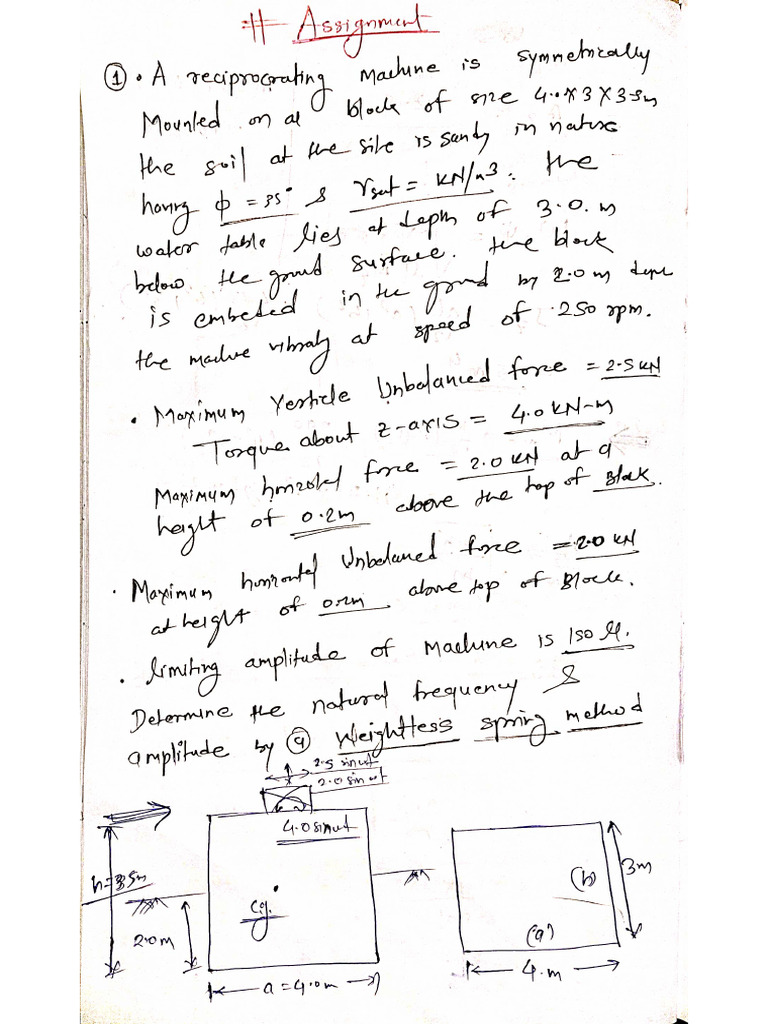 # Assignment
① • A reciprocrating Machine is symmetrically
Mounted on al block of size 4.0×3×3.5m
the soil at the site is sandy in nature
having φ = 35° & γsat = kN/m3. the
water table lies at depth of 3.0. m
below the ground surface. the block
is embeded in the ground by 2.0 m
the machie vibraly at speed of 250 rpm.
• Maximum Verticle Unbalanced force = 2.5 kN
Torque about z-axis = 4.0 kN-m
Maximum horizotal force = 2.0 kN at a
height of 0.2m above the top of Block.
• Maximum horizontal Unbalanced force = 2.0 kN
at height of 0.2m above top of Block.
• limiting amplitude of Machine is 150 μ.
Determine the natural frequency &
amplitude by ⓐ Weightless spring method
2.5 sin wt
2.0 sin wt
4.0 sin wt
h=3.5m
c.g.
2.0m
a = 4.0m
(b)
3m
(a)
4.m